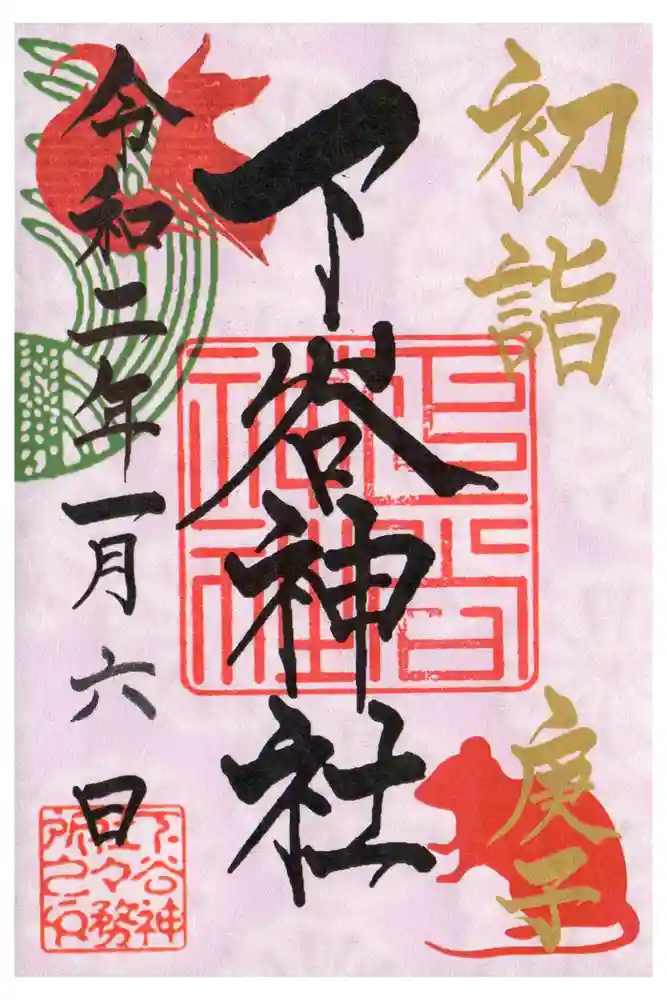 初詣
庚子
下谷神社
令和二年一月六日
下谷神
社々務
所之印